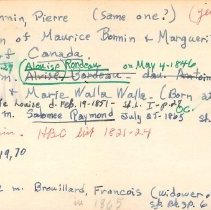 nnin, Pierre (same one?) (je
n of Maurice Bonnin & Marguerit
of Canada.
Alouise Rondeau on May 4-1846
m. Aloise Bordeau - dau. Antoin
& Marie Walla Walla. (Born at
house d. Feb. 19-1851-
m. Salomee Raymond July 25-1865
HBCO list 1821-24
19, 70
m. Brouillard, Francois (widower o
in 1865